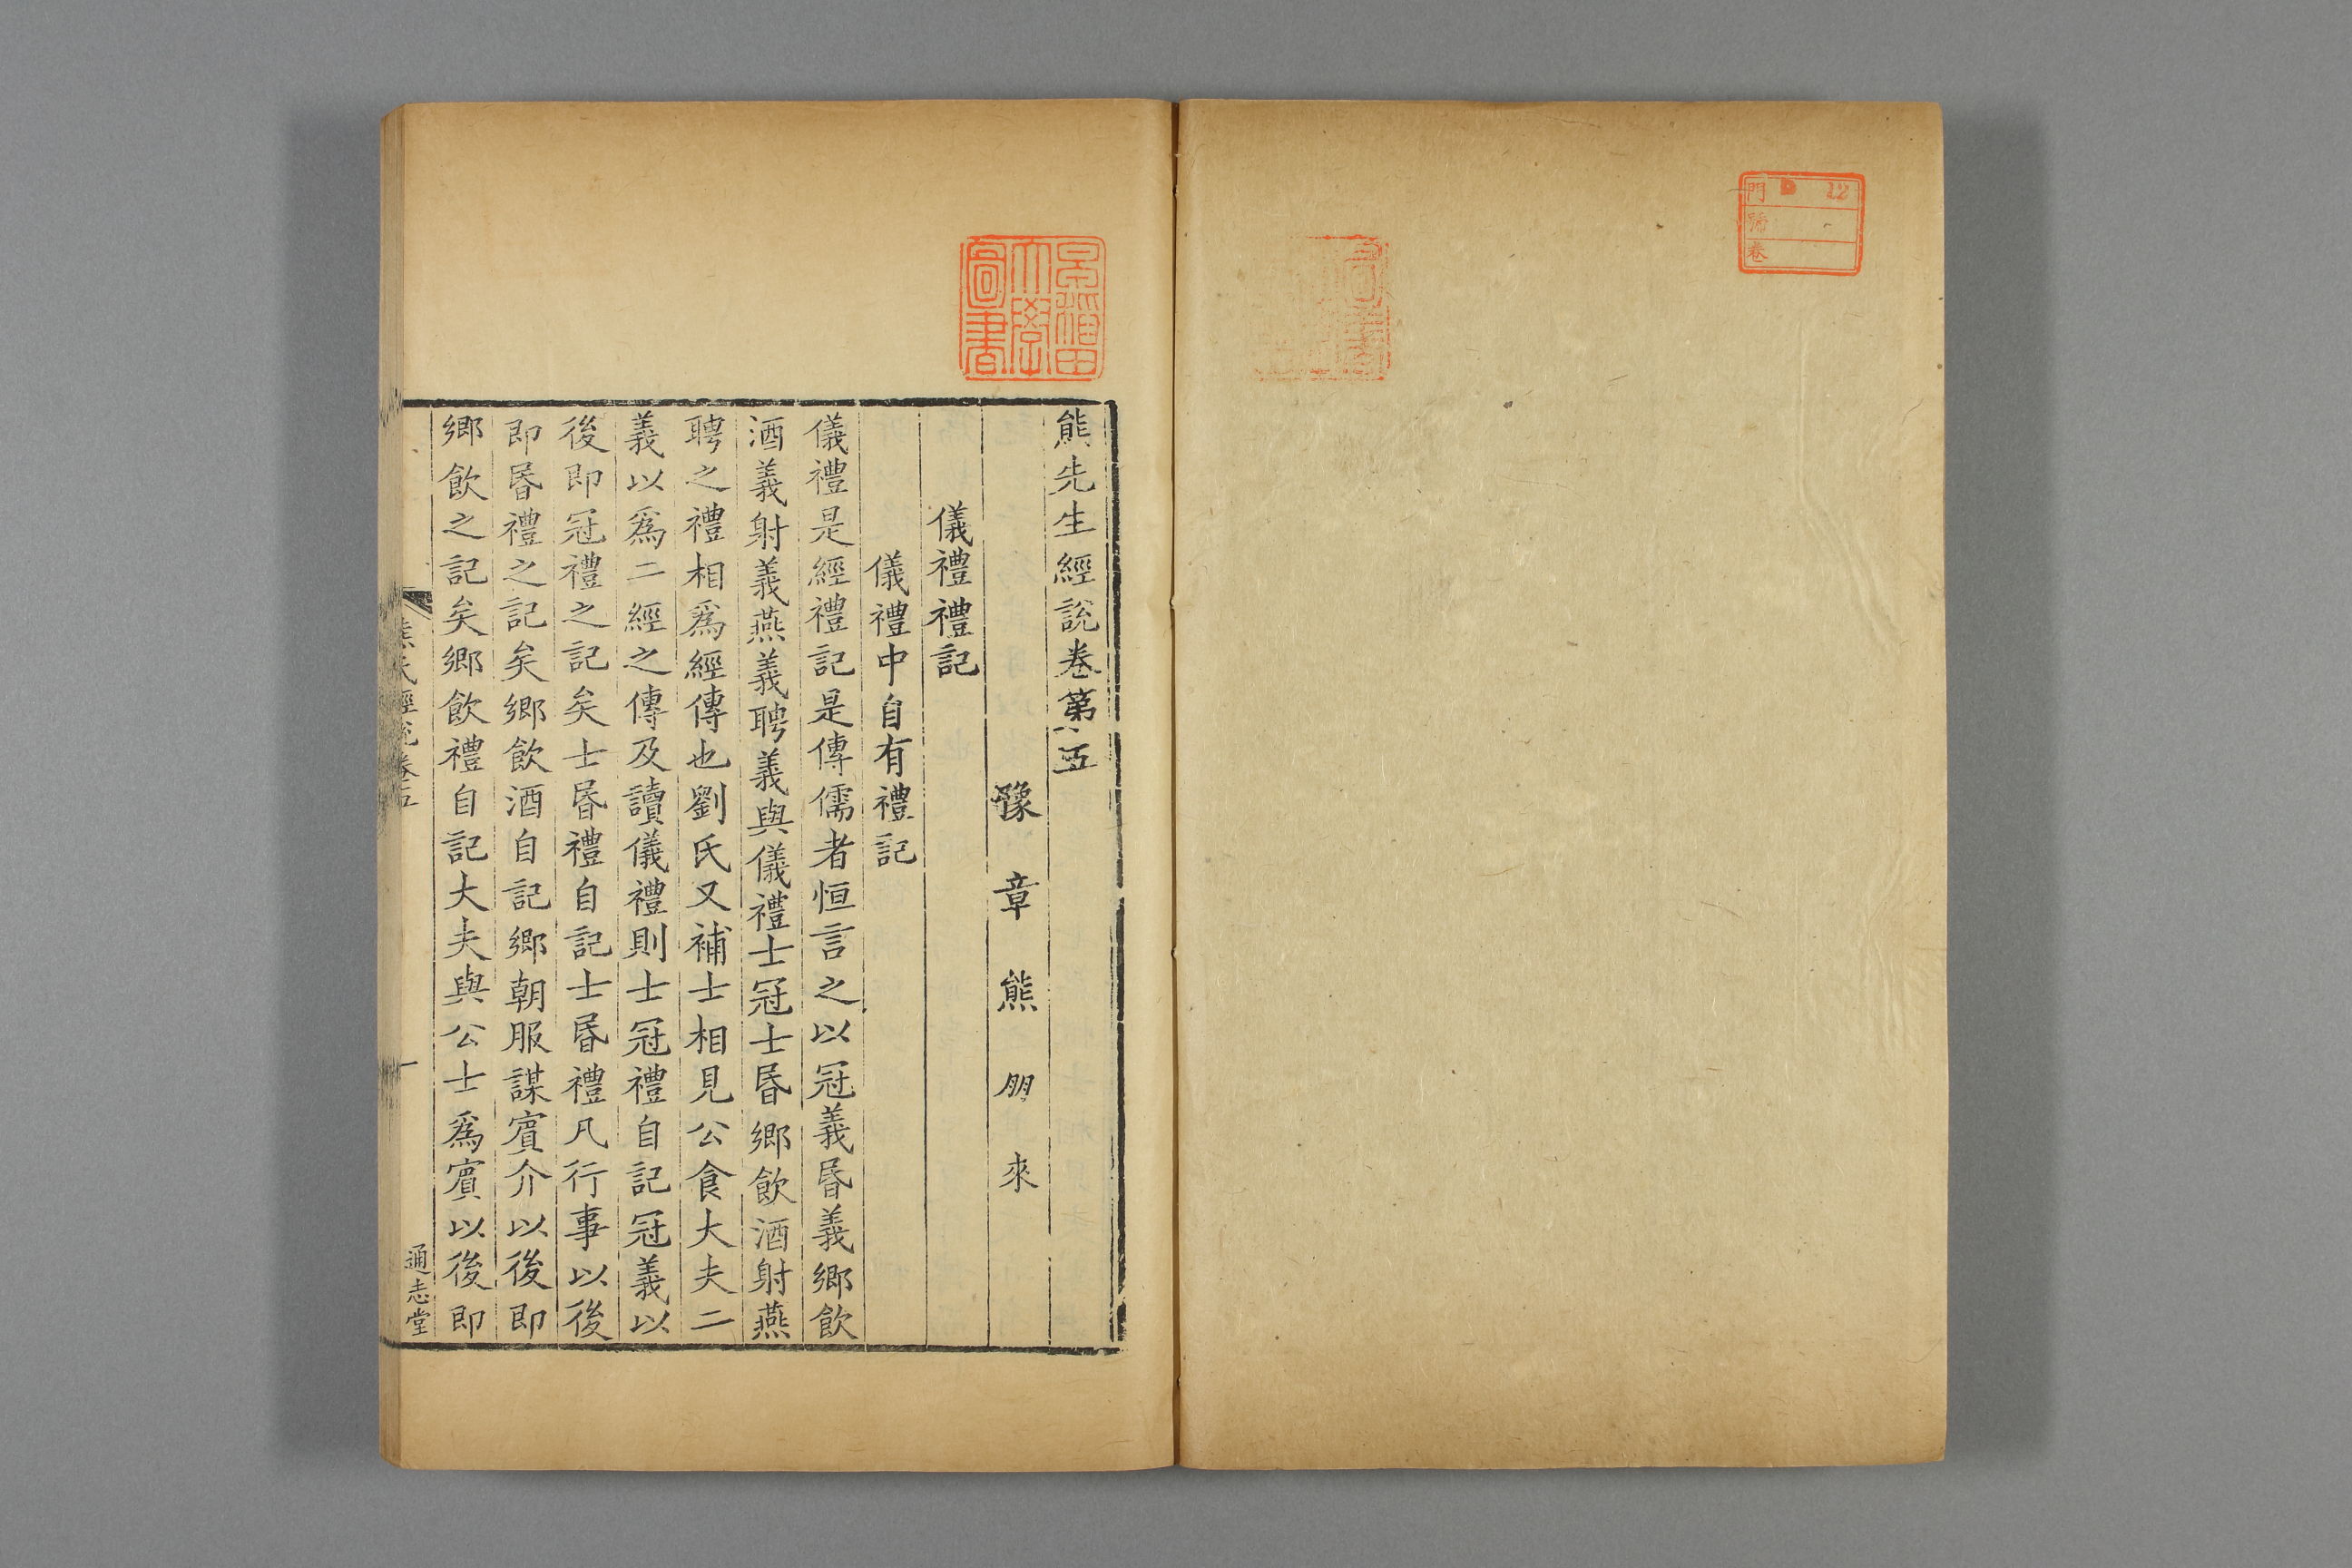 門 D 12
號
卷
早稲田
大學
圖書
熊先生經說卷第五
豫章熊朋來
儀禮禮記
儀禮中自有禮記
儀禮是經禮記是傳儒者恒言之以冠義昬義鄉飲
酒義射義燕義聘義與儀禮士冠士昬鄉飲酒射燕
聘之禮相爲經傳也劉氏又補士相見公食大夫二
義以爲二經之傳及讀儀禮則士冠禮自記冠義以
後即冠禮之記矣士昬禮自記士昬禮凡行事以後
即昬禮之記矣鄉飲酒自記鄉朝服謀賓介以後即
鄉飲之記矣鄉飲禮自記大夫與公士爲賓以後即
熊氏經說卷五
一
通志堂